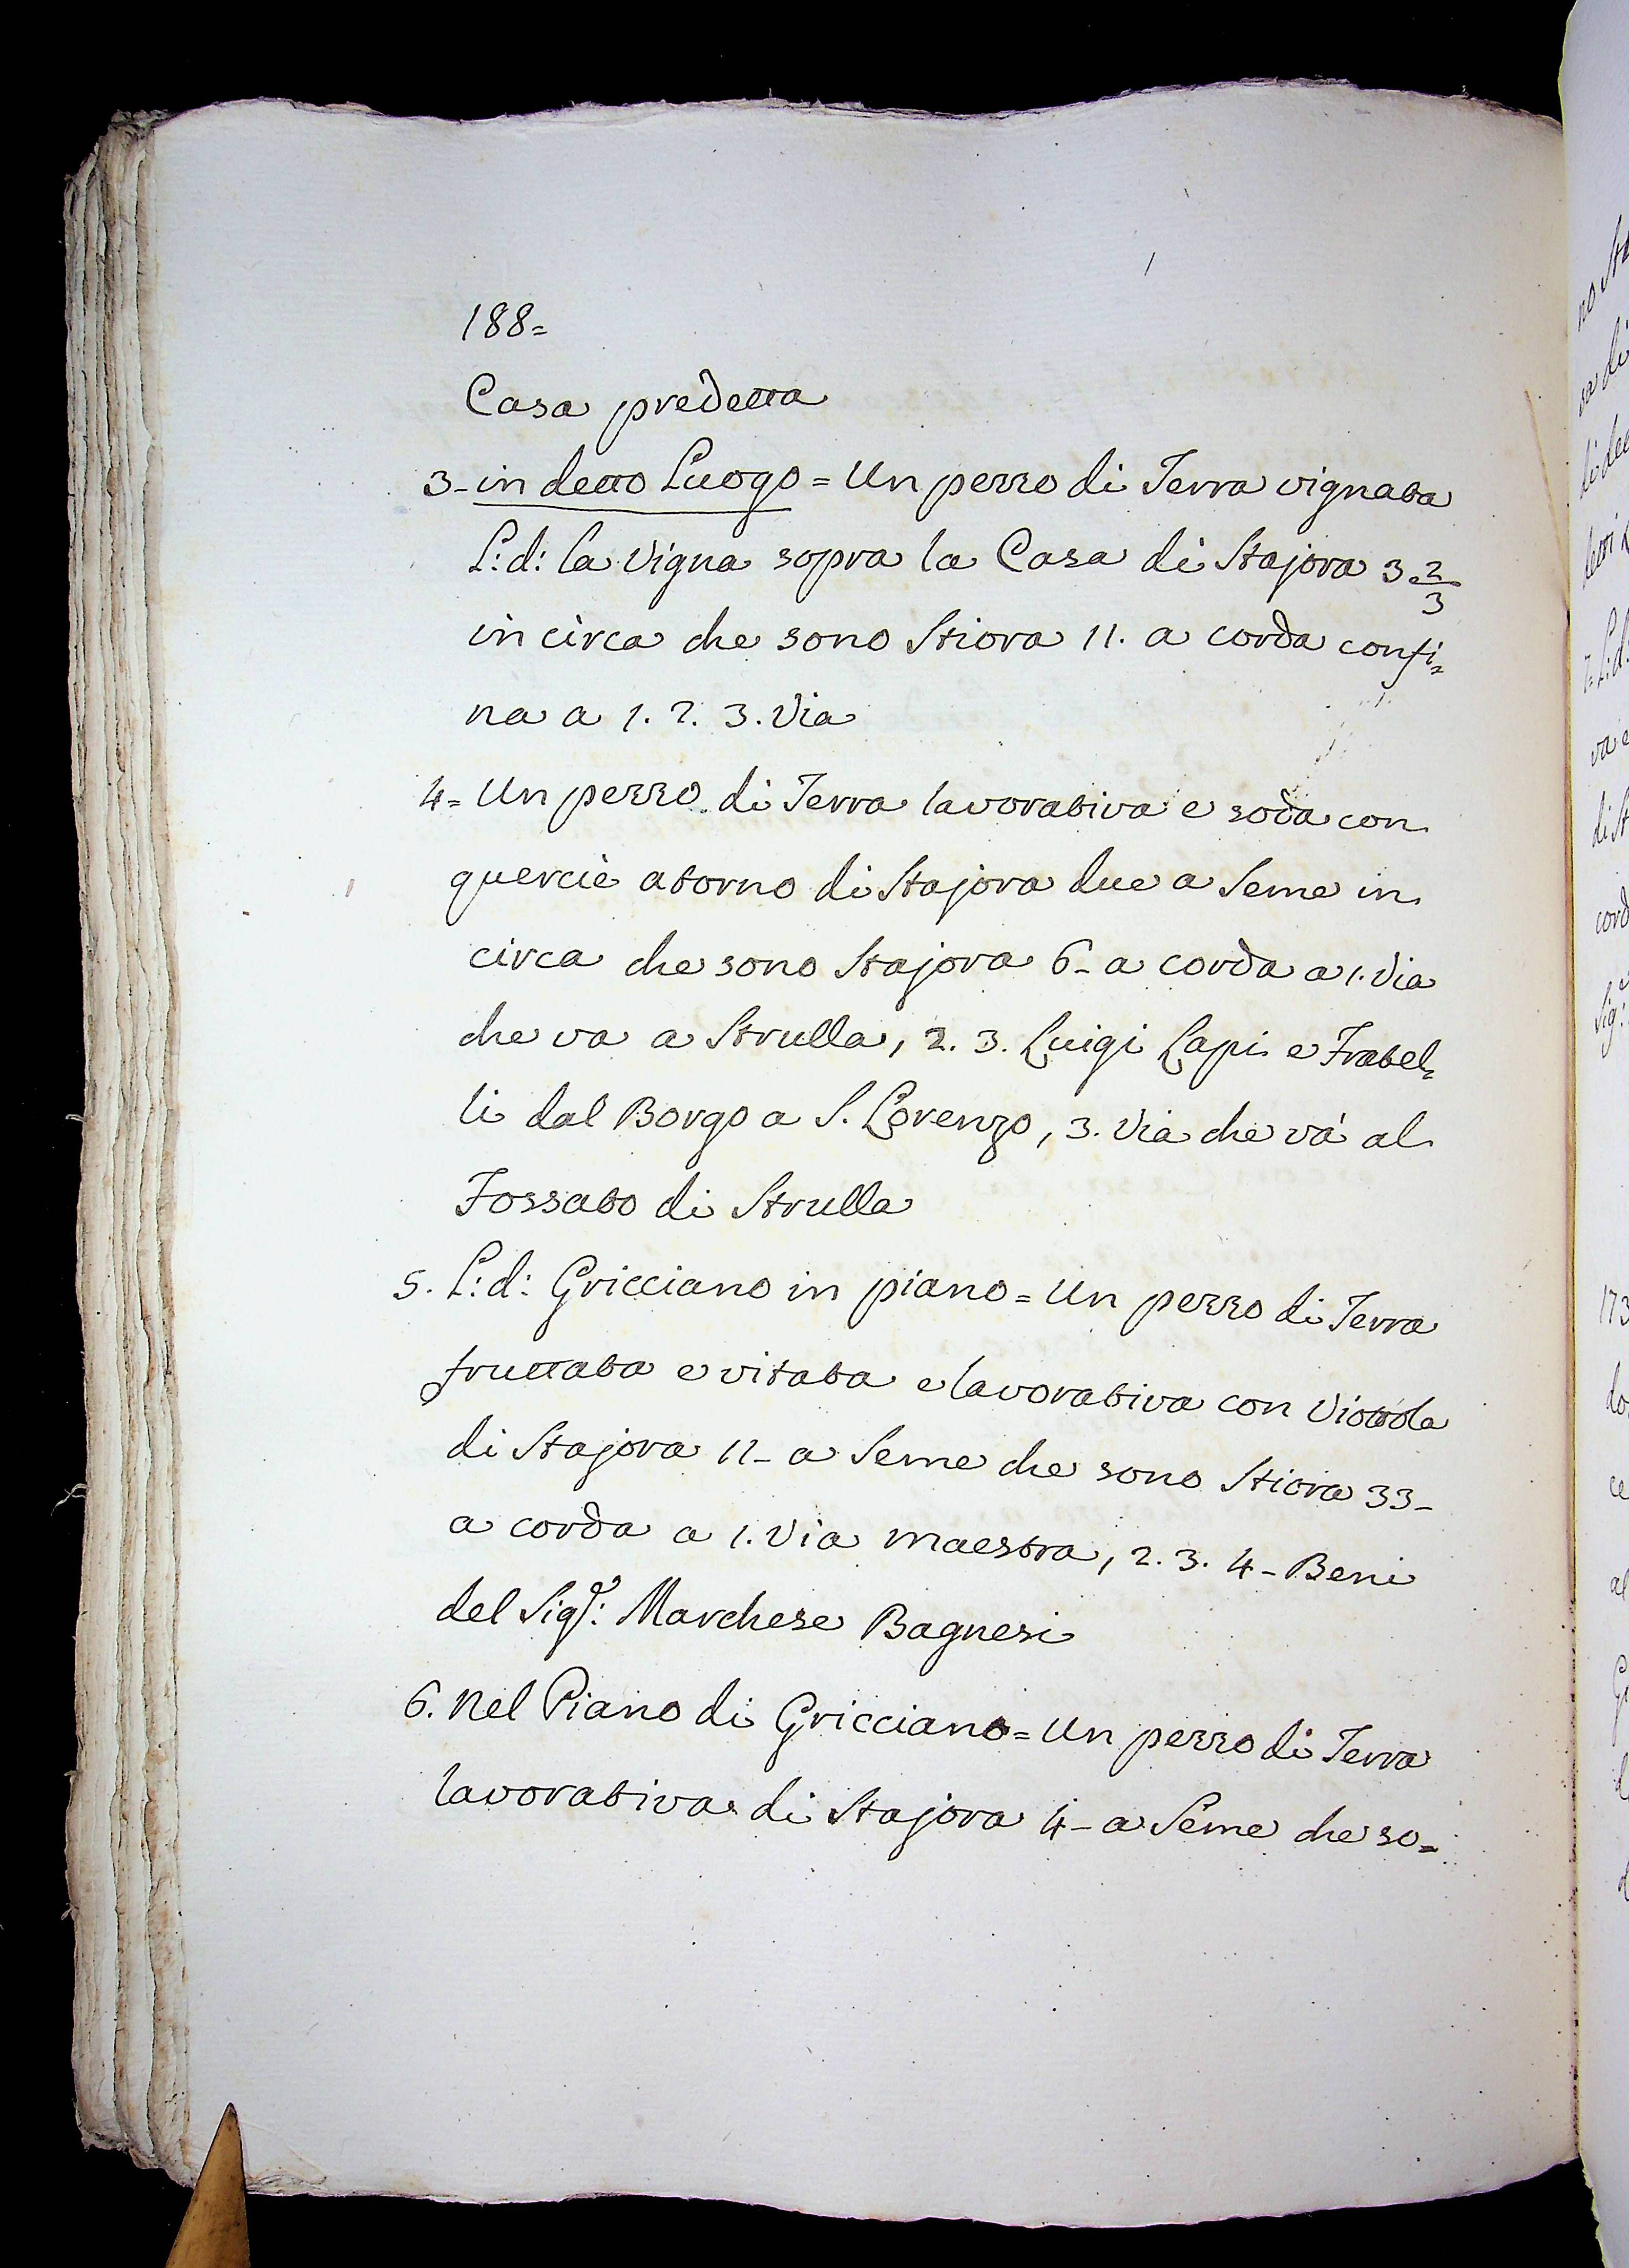 188=
Casa predetta
3- in detto Luogo = Un pezzo di Terra vignata
L: d: la Vigna sopra la Casa di Stajora 3 2/3
in circa che sono Stiora 11. a corda confi=
na a 1. 2. 3. Via
4= Un pezzo di Terra lavorativa e soda con
quercie atorno di Stajora due a Seme in
circa che sono Stajora 6- a corda a 1. Via
che va a Strulla, 2. 3. Luigi Lapi e Fratel=
li dal Borgo a S. Lorenzo, 3. Via che và al
Fossato di Strulla
5. L: d: Gricciano in piano = Un pezzo di Terra
fruttata e vitata e lavorativa con Viottola
di Stajora 11- a Seme che sono Stiora 33-
a corda a 1. Via maestra, 2. 3. 4- Beni
del Sigr: Marchese Bagnesi
6. Nel Piano di Gricciano = Un pezzo di Terra
lavorativa di Stajora 4- a Seme che so=